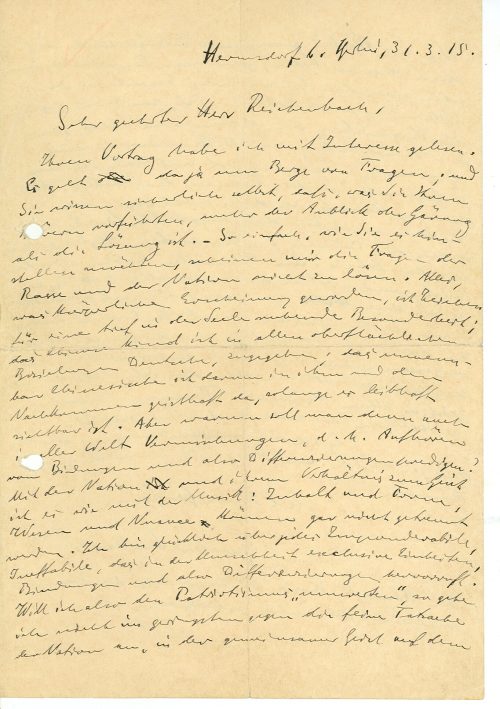 Hermsdorf b. Berlin, 31.3.15.
Sehr geehrter Herr Reichenbach,
Ihren Vortrag habe ich mit Interesse gelesen.
Es geht da ja um Berge von Fragen, und
Sie wissen sicherlich selbst, daß, was Sie Ihren
Hörern vorführten, mehr der Anblick der Gärung
als die Lösung ist. – So einfach, wie Sie es hin-
stellen möchten, scheinen mir die Fragen der
Rasse und der Nation nicht zu lösen. Alles,
was körperliche Erscheinung geworden, ist Zeichen
für eine tief in der Seele ruhende Besonderheit;
das Kind ist in allen oberflächlichen
Beziehungen Deutsche, zugegeben; das unnenn-
bar Chinesische ist darum in ihm und den
Nachkommen geisthaft da, solange es leibhaft
sichtbar ist. Aber warum soll man denn auch
in aller Welt Vermischungen, d. h. Aufhören
von Bindungen und also Differenzierungen predigen?
Mit der Nation und ihrem Verhältnis zum Geist
ist es wie mit der Musik: Inhalt und Form,
Wesen und Nuance können gar nicht getrennt
werden. Ich bin glücklich über jedes Imponderabile,
Ineffabile, das in der Menschheit exclusive Einheiten,
Bindungen und also Differenzierungen hervorruft.
Will ich also den Patriotismus „umwerten“, so gehe
ich nicht im geringsten gegen die feine Tatsache
der Nation an, in der gemeinsamer Geist auf dem